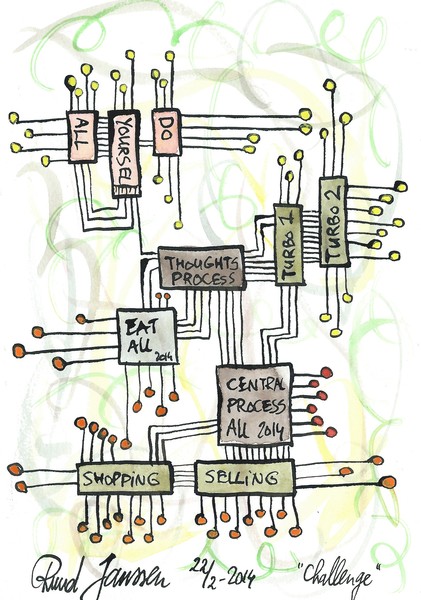 ALL
YOURSELF
DO
TURBO 1
TURBO 2
THOUGHTS
PROCESS
EAT
ALL
2014
CENTRAL
PROCESS
ALL 2014
SHOPPING
SELLING
Ruud Janssen 22/2-2014 "Challenge"